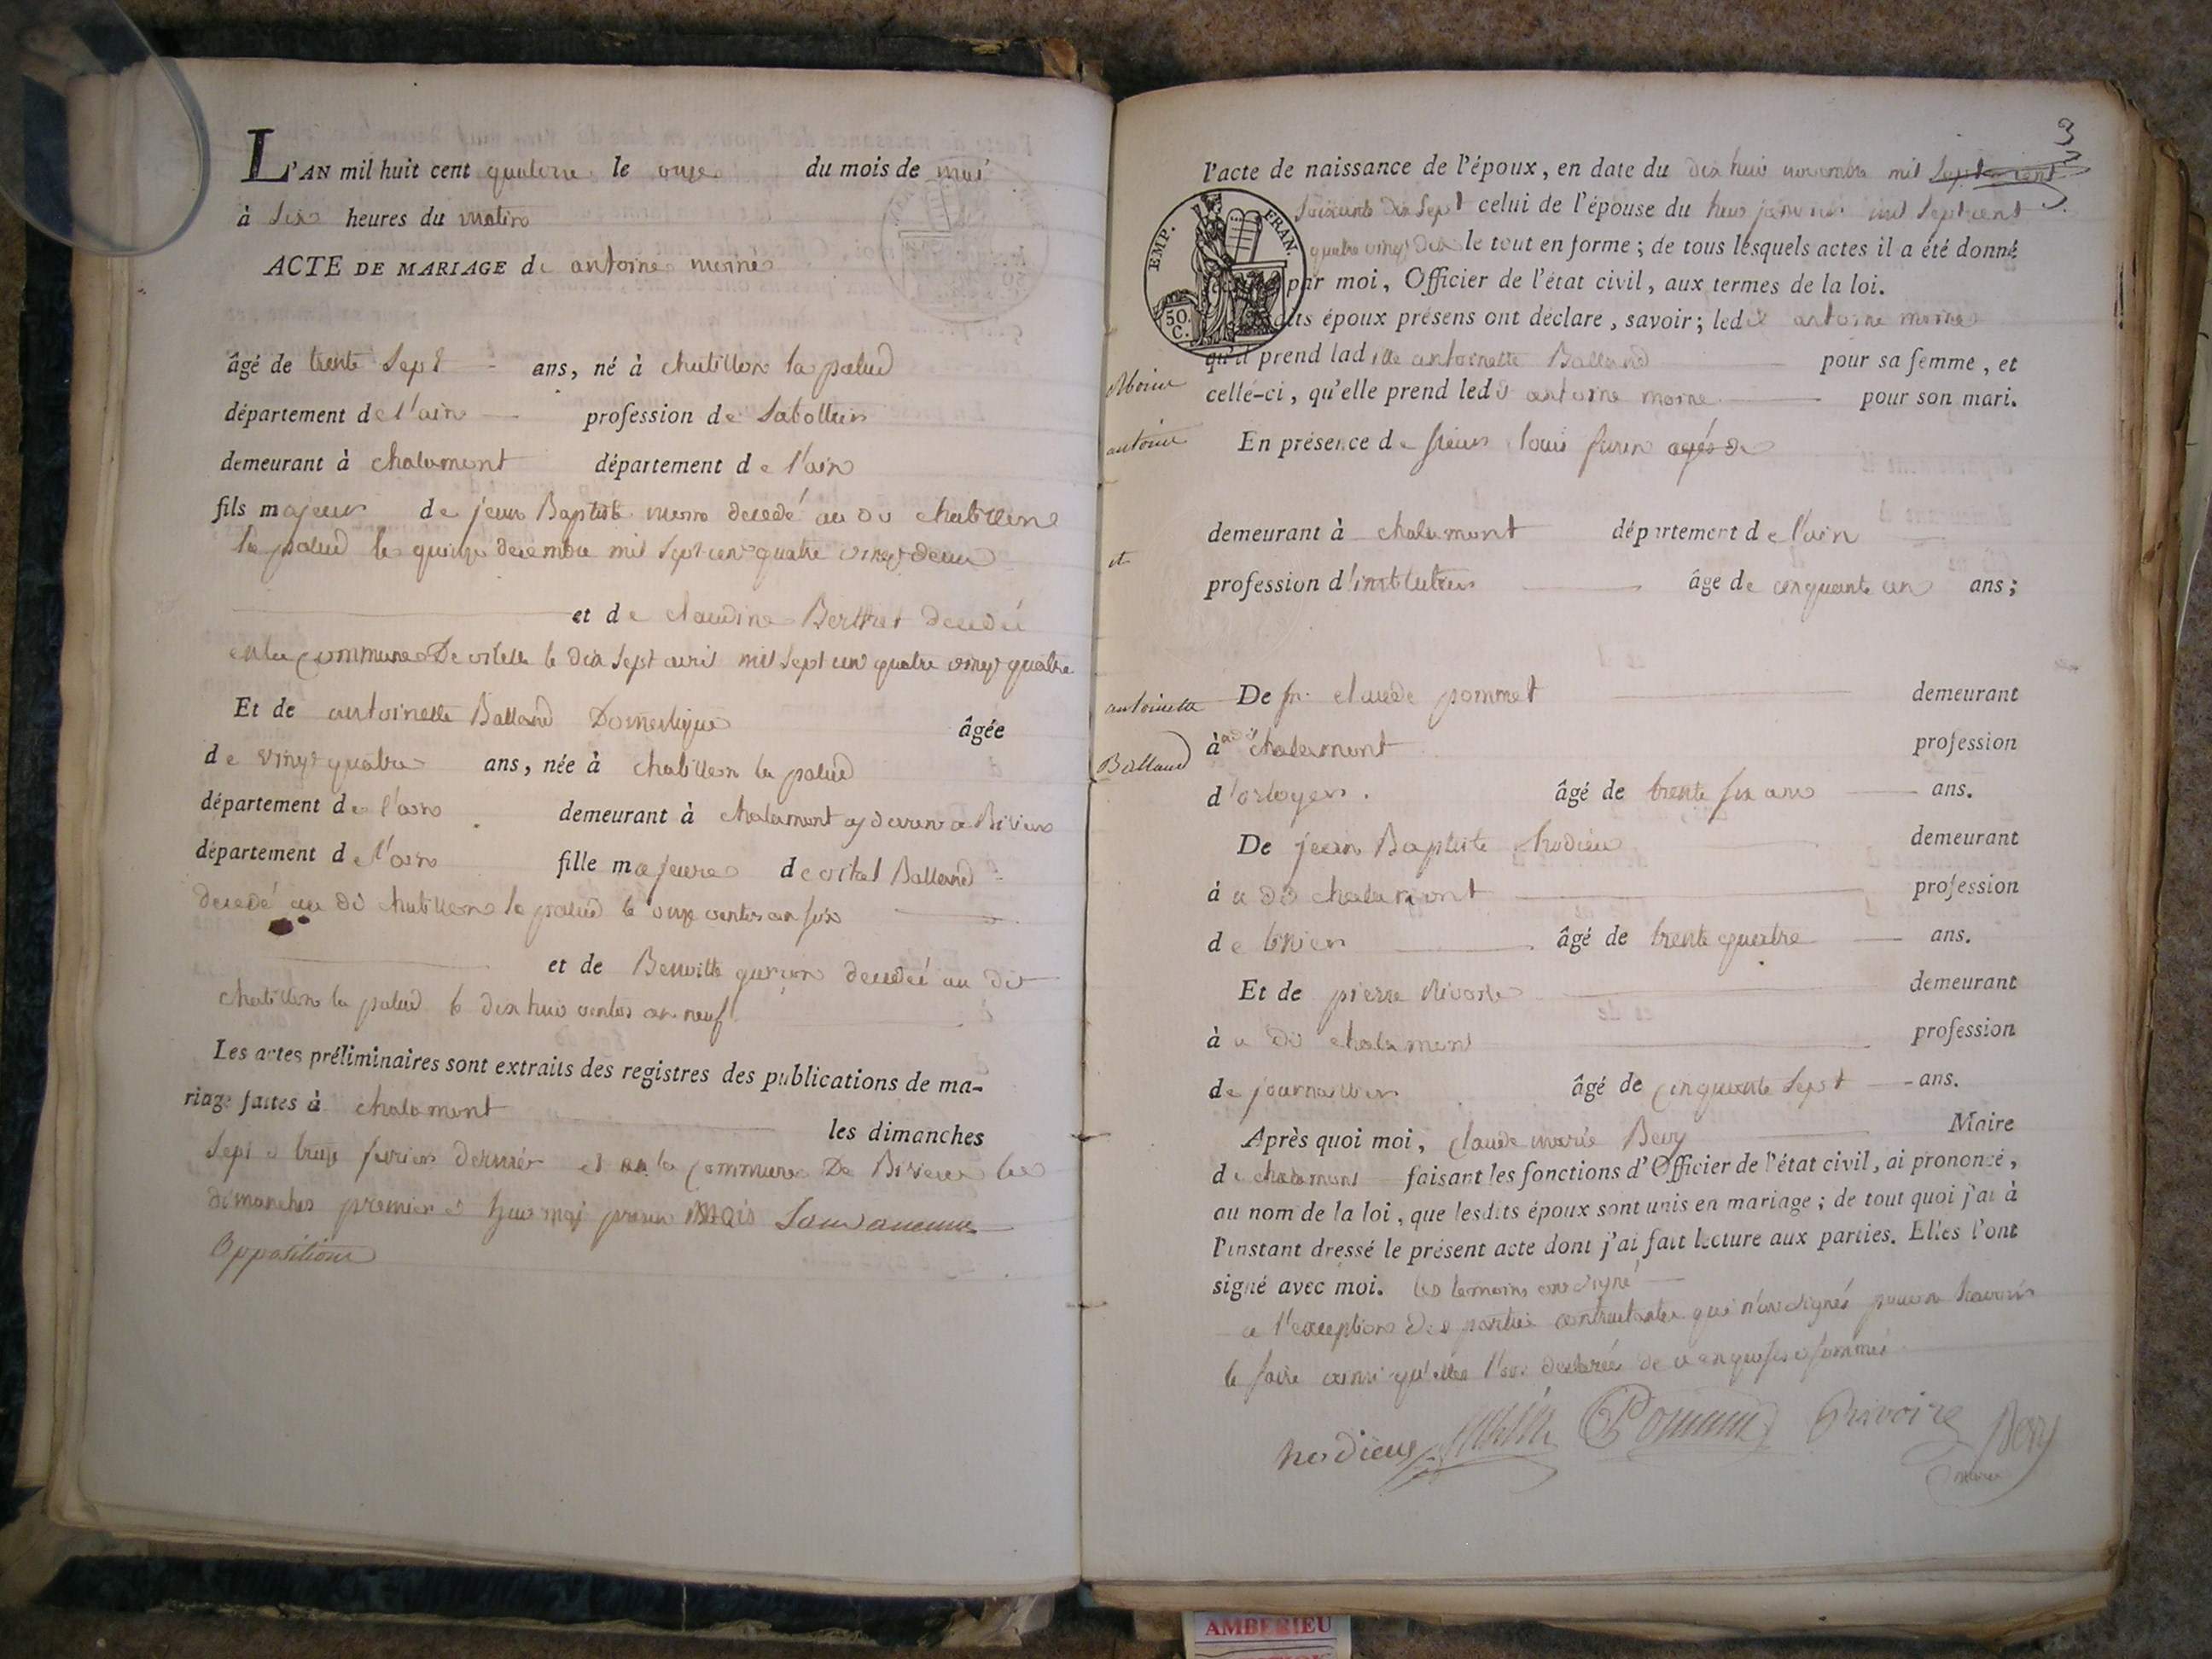 L'AN mil huit cent quatorze le onze du mois de mai
à six heures du matin
ACTE DE MARIAGE de antoine moine
âgé de trente sept ans, né à chatillon la palud
département de l'ain profession de Sabottier
demeurant à chalamont département de l'ain
fils majeur de jean Baptiste décédé au dit chatillon
la palud le quinze décembre mil sept cent quatre vingt deux
et de claudine Berthet décédé
en la commune De le dix sept avril mil sept cent quatre vingt quatre
Et de antoinette Balland Domestique âgée
de vingt quatre ans, née à chatillon la palud
département de l'ain demeurant à chalamont
département de l'ain fille majeure de vital Balland
décédé au dit chatillon la palud le onze ventos an six
et de Benoitte décédé au dit
chatillon la palud le dix huit ventos an neuf
Les actes préliminaires sont extraits des registres des publications de ma-
riage faites à chalamont les dimanches
sept et dernier et en la commune De Birieux les
dimanches premier et huit mai mois Sans aucune
Opposition
3
l'acte de naissance de l'époux, en date du dix huit novembre mil sept cent
EMP. FRAN.
50. C.
soixante dix sept celui de l'épouse du huit janvier mil sept cent
quatre vingt dix le tout en forme ; de tous lesquels actes il a été donné
par moi, Officier de l'état civil, aux termes de la loi.
époux présens ont déclaré, savoir ; ledit antoine moine
qu'il prend ladite antoinette Balland pour sa femme, et
celle-ci, qu'elle prend ledit antoine moine pour son mari.
Moine
antoine
et
antoinette
Balland
En présence de sieur louis
demeurant à chalamont département de l'ain
profession d'instituteur âgé de cinquante un ans ;
De claude pommet demeurant
à chalamont profession
d'orloger. âgé de trente six ans ans.
De jean Baptiste demeurant
à au dit chalamont profession
de âgé de trente quatre ans.
Et de pierre demeurant
à au dit chalamont profession
de journaillier âgé de cinquante sept ans.
Après quoi moi, claude marie Bery Maire
de chalamont faisant les fonctions d'Officier de l'état civil, ai prononcé,
au nom de la loi, que lesdits époux sont unis en mariage ; de tout quoi j'ai à
l'instant dressé le présent acte dont j'ai fait lecture aux parties. Elles l'ont
signé avec moi. les temoins ont signé
a l'exception des parties contractantes qui n'ont signés
le faire ainsi qu'elles l'ont declarés de ce
nodieu Bery
maire
AMBERIEU